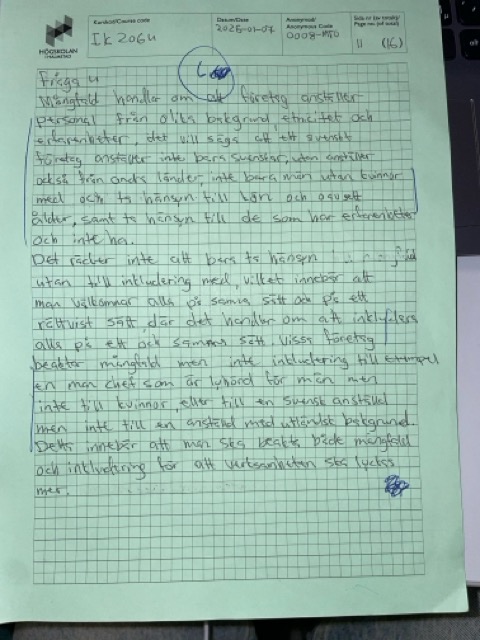 HÖGSKOLAN
KRISTIANSTAD
Kurskod/Course code
IK206U
Datum/Date
Anonymkod/
Anonymous Code
0008-
11 (16)
Fråga 4
Mångfald handlar om att företag anställer
personal från olika bakgrund, etnicitet och
erfarenheter, det vill säga att ett svenskt
företag anställer inte bara svenskar, utan anställer
också från andra länder, inte bara män utan kvinnor
med och ta hänsyn till kön och oavsett
ålder, samt ta hänsyn till de som har erfarenheter
och inte ha.
Det räcker inte att bara ta hänsyn
utan till inkludering med, vilket innebär att
man välkomnar alla på samma sätt och på ett
rättvist sätt, där det handlar om att inkludera
alla på ett och samma sätt. Vissa företag
beaktar mångfald men inte inkludering till exempel
en man chef som är lyhörd för män men
inte till kvinnor, eller till en svensk anställd
men inte till en anställd med utländsk bakgrund.
Detta innebär att man ska beakta både mångfald
och inkludering för att verksamheten ska lyckas
mer.